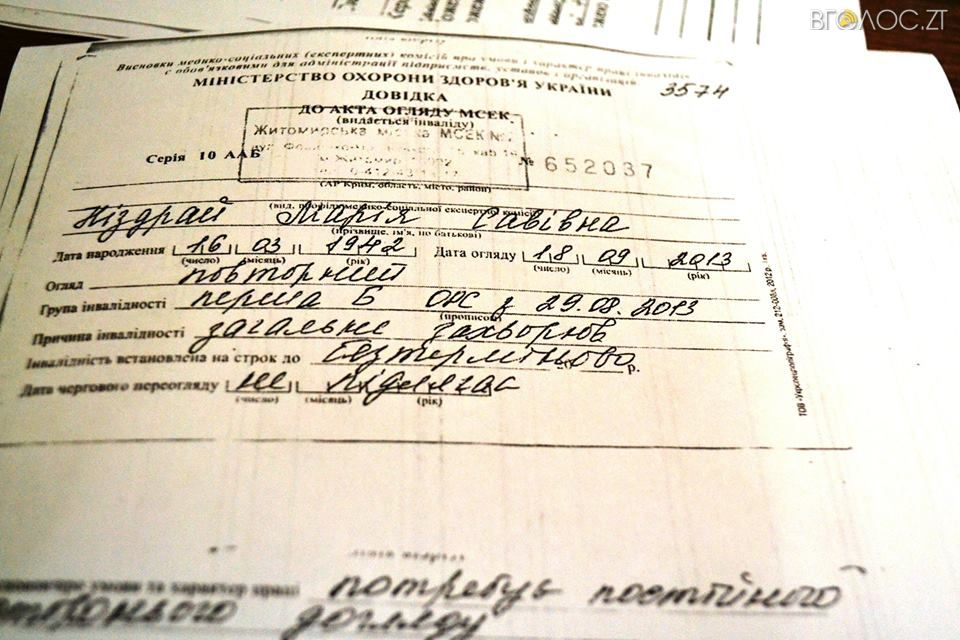 ВГОЛОС.ZT
Висновки медико-соціальних (експертних) комісій про умови і характер праці інвалідів
є обов'язковими для адміністрації підприємств, установ і організацій
МІНІСТЕРСТВО ОХОРОНИ ЗДОРОВ'Я УКРАЇНИ
3574
ДОВІДКА
ДО АКТА ОГЛЯДУ МСЕК
(видається інваліду)
Житомирська міська МСЕК №2
Серія 10 ААБ
№ 652037
м. Житомир
(АР Крим, область, місто, район)
(вид, профіль медико-соціальної експертної комісії)
Ніздрай Марія Савівна
(прізвище, ім'я, по батькові)
Дата народження 16 03 1942 Дата огляду 18 09 2013
(число) (місяць) (рік) (число) (місяць) (рік)
Огляд повторний
Група інвалідності перша Б ОРС з 29.08.2013
(прописом)
Причина інвалідності загальне захворюв
Інвалідність встановлена на строк до безтерміново р.
Дата чергового переогляду не підлягає
(число) (місяць) (рік)
ТОВ «Укрполіграфія» 2012 р.
умови та характер праці потребує постійного
стороннього догляду